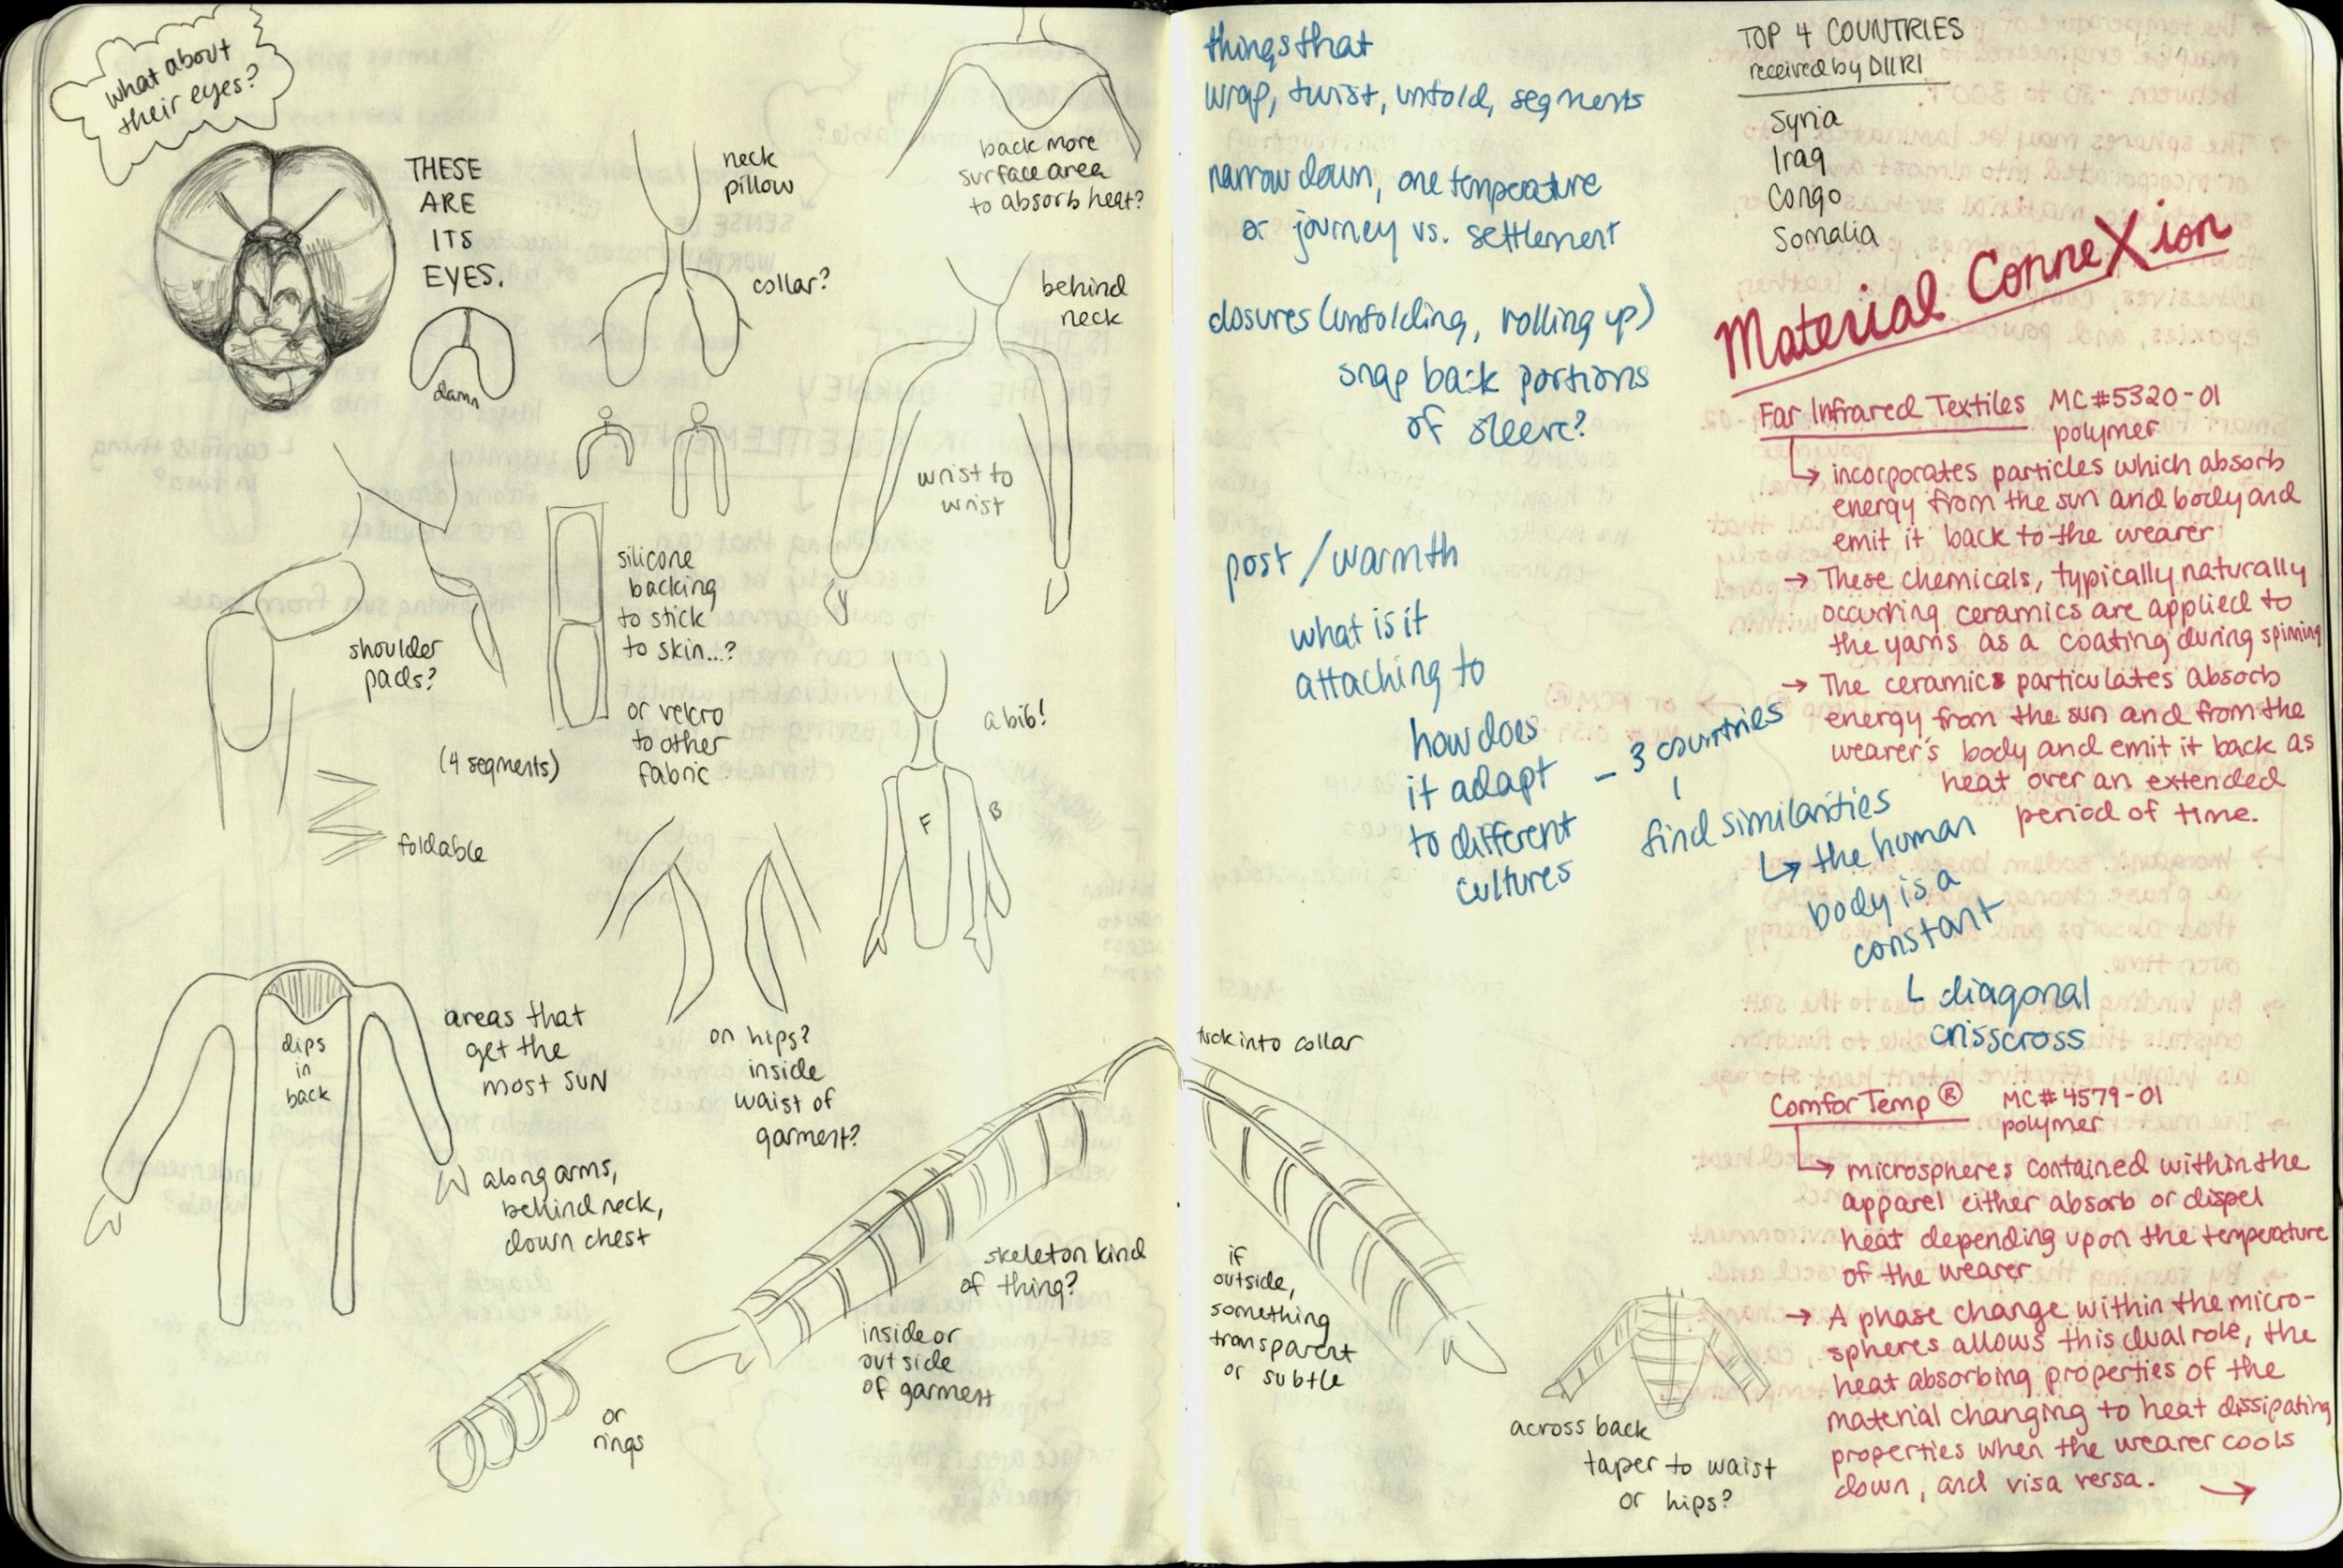 what about
their eyes?
THESE
ARE
ITS
EYES.
damn
neck
pillow
collar?
back more
surface area
to absorb heat?
behind
neck
wrist to
wrist
shoulder
pads?
(4 segments)
foldable
silicone
backing
to stick
to skin...?
or velcro
to other
fabric
a bib!
F
B
dips
in
back
areas that
get the
most SUN
along arms,
behind neck,
down chest
on hips?
inside
waist of
garment?
skeleton kind
of thing?
inside or
outside
of garment
or
rings
things that
wrap, twist, unfold, segments
narrow down, one temperature
or journey vs. settlement
closures (unfolding, rolling up)
snap back portions
of sleeve?
post / warmth
what is it
attaching to
how does
it adapt
to different
cultures
– 3 countries
find similarities
↳ the human
body is a
constant
L diagonal
crisscross
tuck into collar
if
outside,
something
transparent
or subtle
across back
taper to waist
or hips?
TOP 4 COUNTRIES
received by DIIRI
Syria
Iraq
Congo
Somalia
Material ConneXion
Far Infrared Textiles MC#5320-01
polymer
↳ incorporates particles which absorb
energy from the sun and body and
emit it back to the wearer
→ These chemicals, typically naturally
occurring ceramics are applied to
the yarns as a coating during spinning
→ The ceramics particulates absorb
energy from the sun and from the
wearer's body and emit it back as
heat over an extended
period of time.
ComforTemp ® MC#4579-01
polymer
↳ microspheres contained within the
apparel either absorb or dispel
heat depending upon the temperature
of the wearer
→ A phase change within the micro-
spheres allows this dual role, the
heat absorbing properties of the
material changing to heat dissipating
properties when the wearer cools
down, and visa versa. →